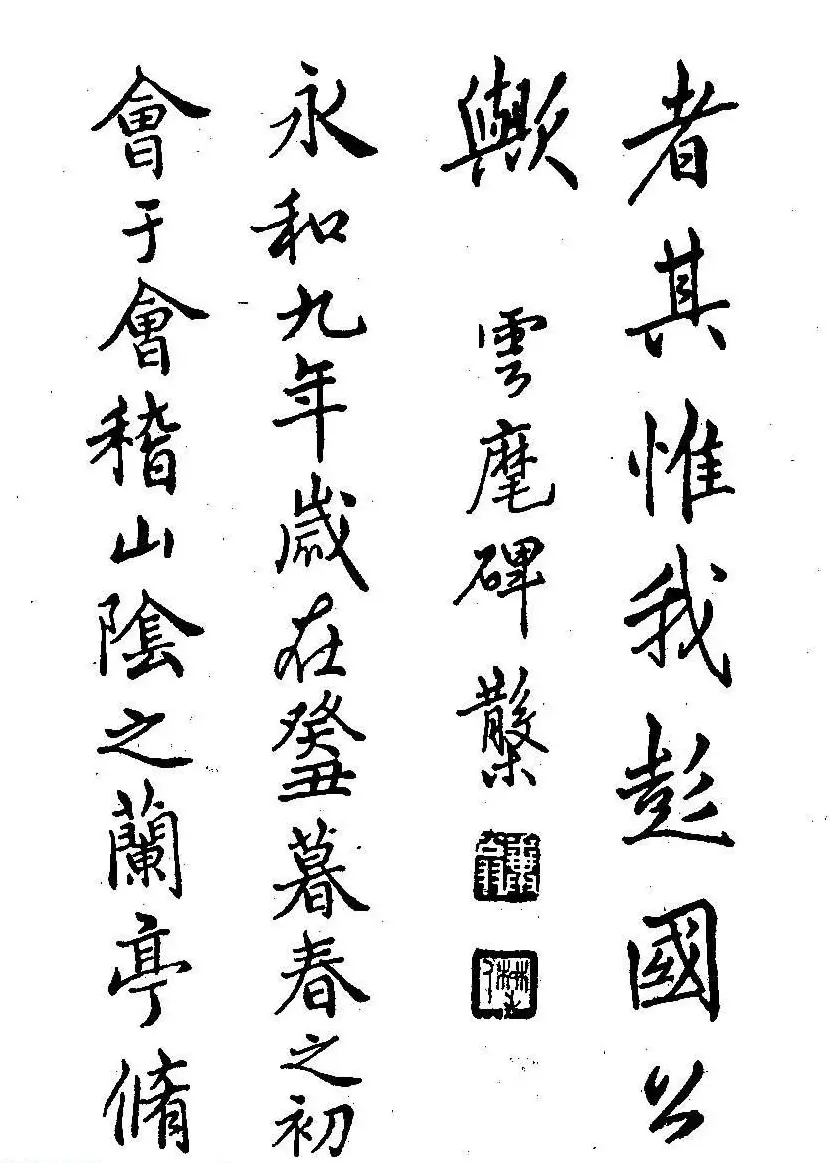 者其惟我彭國公
歟 雲麾碑
永和九年歲在癸丑暮春之初
會于會稽山陰之蘭亭脩